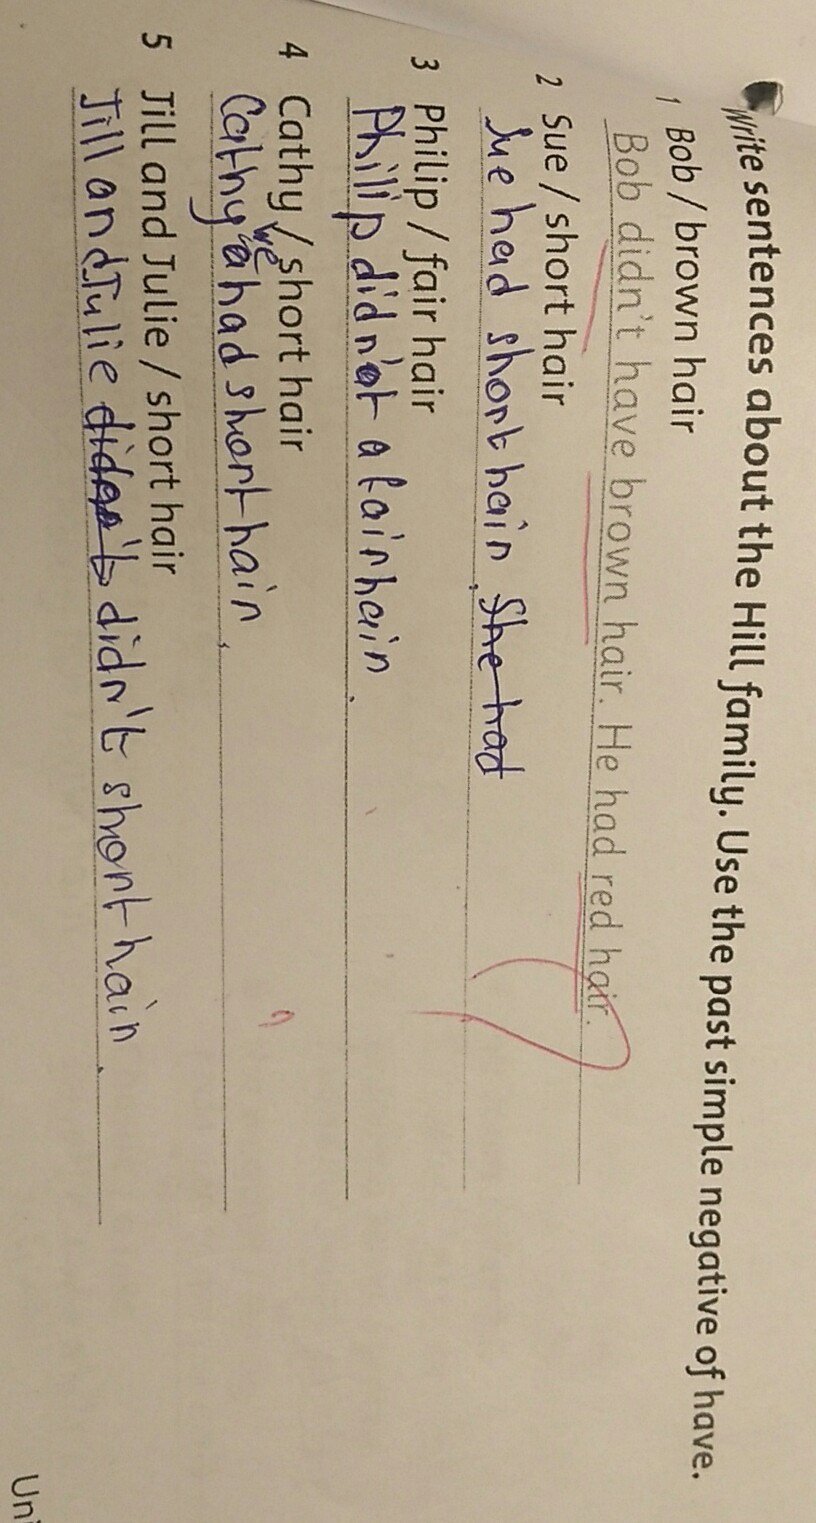 Write sentences about the Hill family. Use the past simple negative of have.
1 Bob / brown hair
Bob didn't have brown hair. He had red hair.
2 Sue / short hair
Sue had short hair. She had
3 Philip / fair hair
Philip didn't a fair hair.
4 Cathy / short hair
we
Cathy a had short hair.
5 Jill and Julie / short hair
Jill and Julie didn't didn't short hair.
Uni